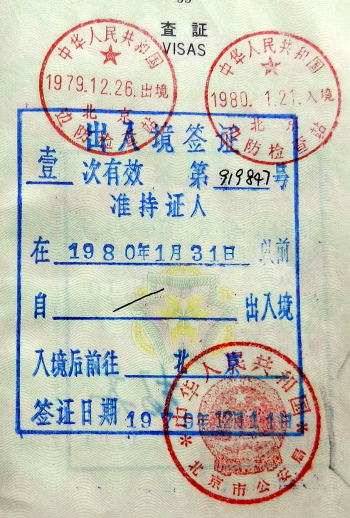 査証
VISAS
中华人民共和国
1979.12.26.出境
北京
边防检查站
中华人民共和国
1980.1.21.入境
北京
边防检查站
出入境签证
壹次有效 第919847号
准持证人
在1980年1月31日以前
自 出入境
入境后前往北京
签证日期1979年12月11日
中华人民共和国
北京市公安局